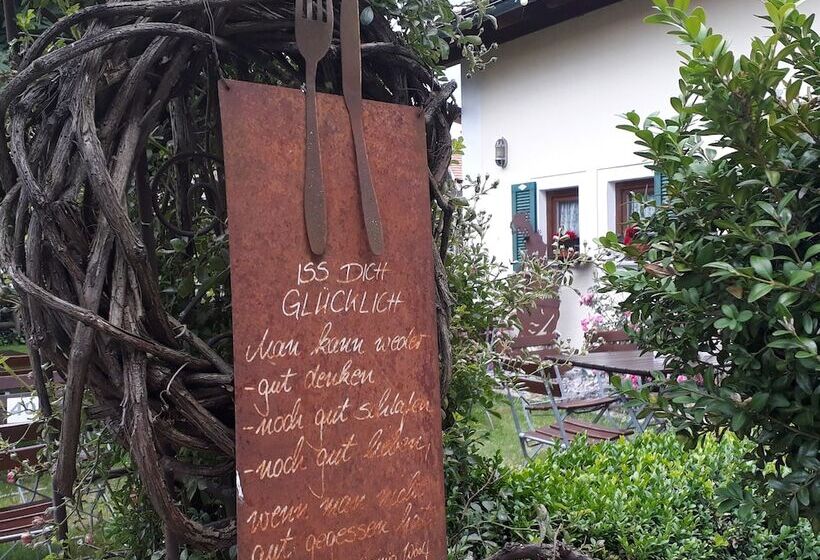 ISS DICH
GLÜCKLICH
Man kann weder
-gut denken
-noch gut schlafen
-noch gut lieben,
wenn man nicht
gut gegessen hat